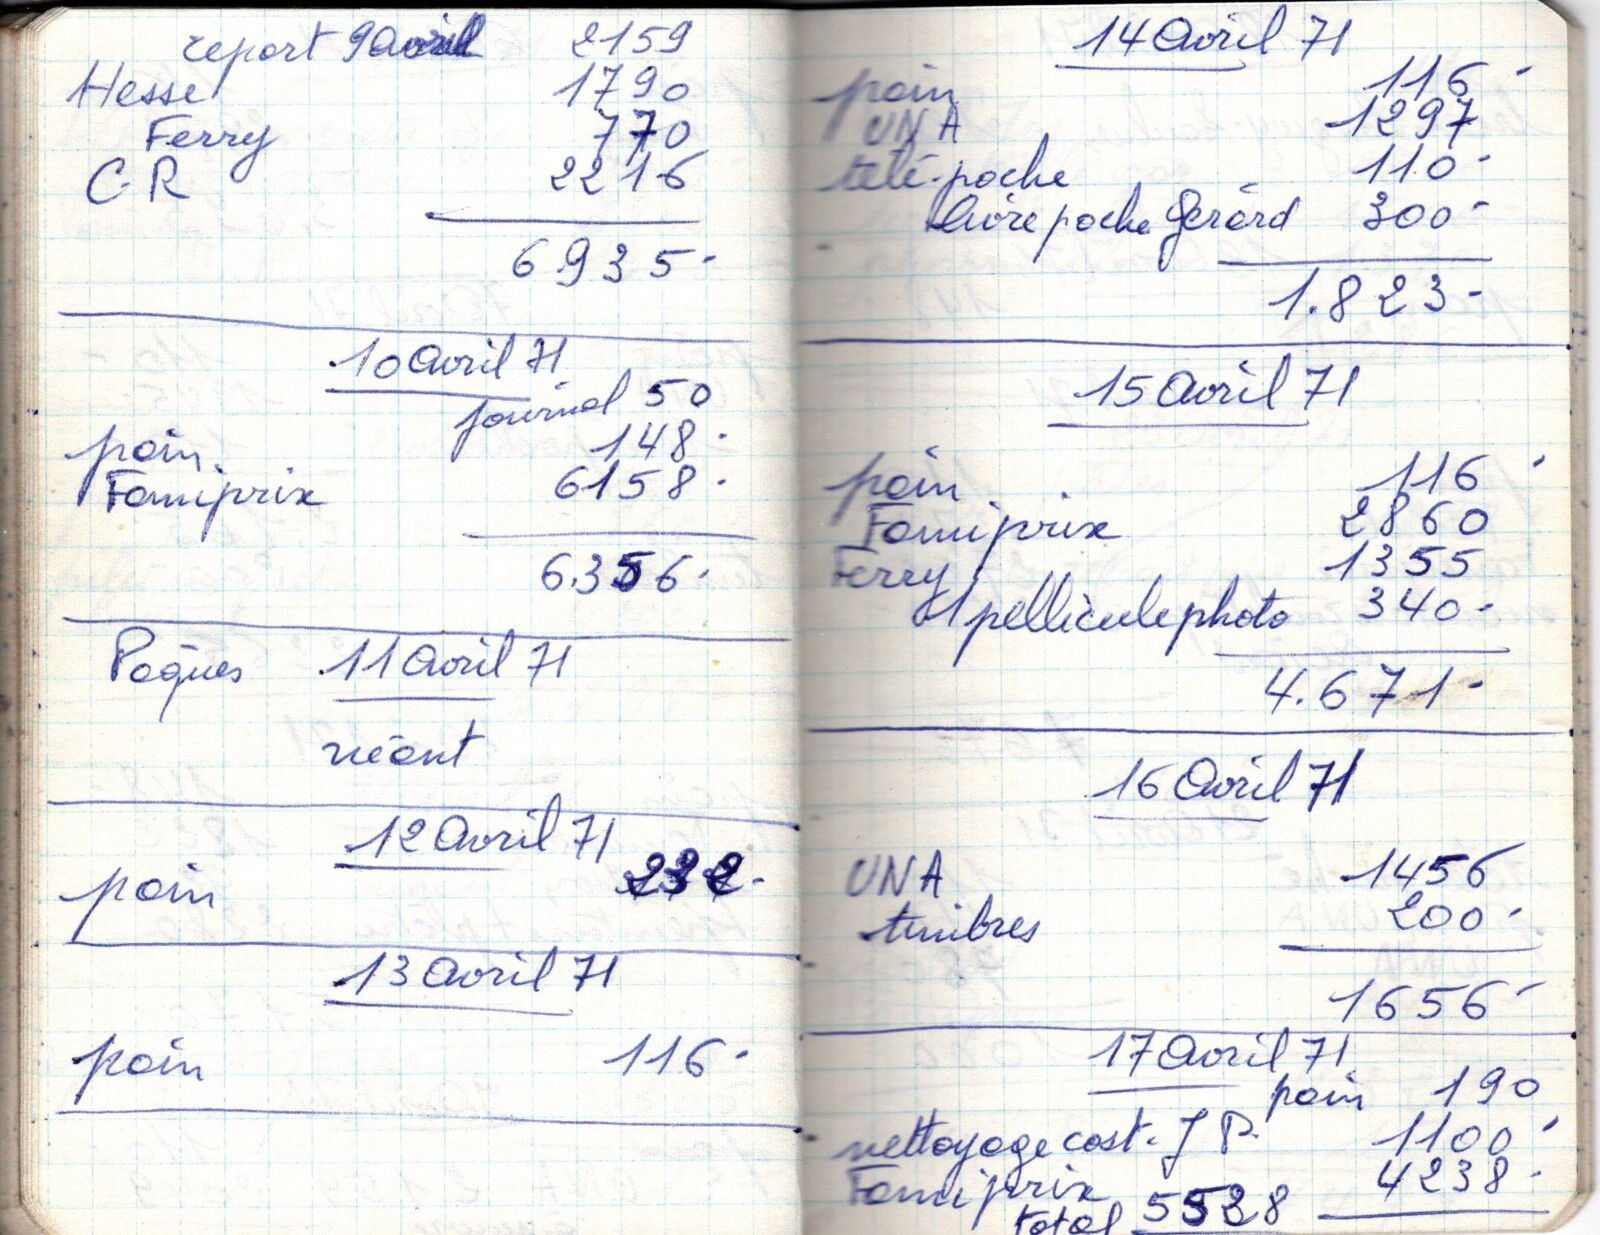 report 9 avril 2159
Hesse 1790
Ferry 770
C.R 2216
6935-
10 avril 71
journal 50
pain 148-
Famiprix 6158-
6.356-
Pâques 11 avril 71
néant
12 avril 71
pain 232-
13 avril 71
pain 116-
14 avril 71
pain 116-
UNA 1297
télé-poche 110-
livre poche Gérard 300-
1.823-
15 avril 71
pain 116-
Famiprix 2860
Ferry 1355
1 pellicule photo 340-
4.671-
16 avril 71
UNA 1456
timbres 200-
1656-
17 avril 71
pain 190
nettoyage cost. J P. 1100-
Famiprix 4238-
total 5528